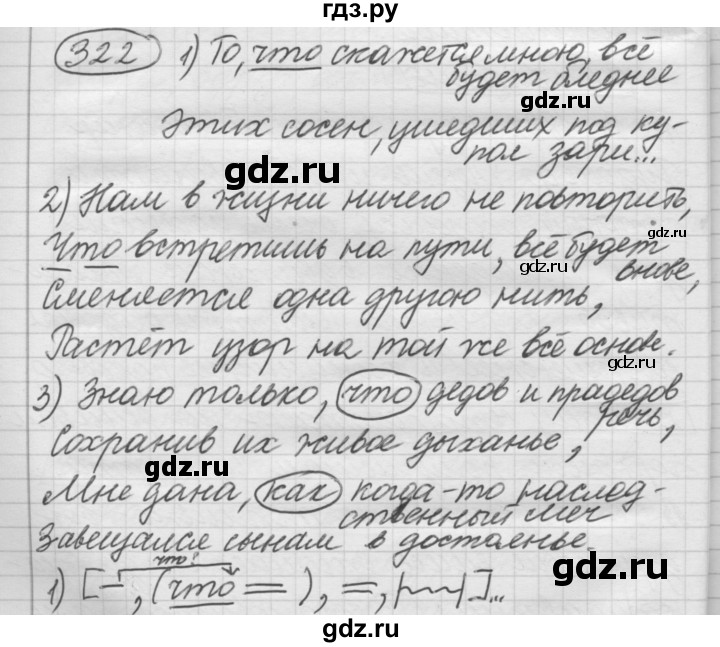 гдз.ру
322 1) То, что скажется мною, всё
будет бледнее
gdz.ru
Этих сосен, ушедших под ку-
пол зари...
gdz.ru
2) Нам в жизни ничего не повторить,
gdz.ru
Что встретишь на пути, всё будет
внове,
gdz.ru
Сменяется одна другою нить,
Растёт узор на той же всё основе.
gdz.ru
3) Знаю только, что дедов и прадедов
речь,
gdz.ru
Сохранив их живое дыханье,
gdz.ru
Мне дана, как когда-то наслед-
ственный меч
Завещался сынам в достоянье.
что?
gdz.ru
1) [–, (что =), =, |~~|]...
gdz.ru
gdz.ru